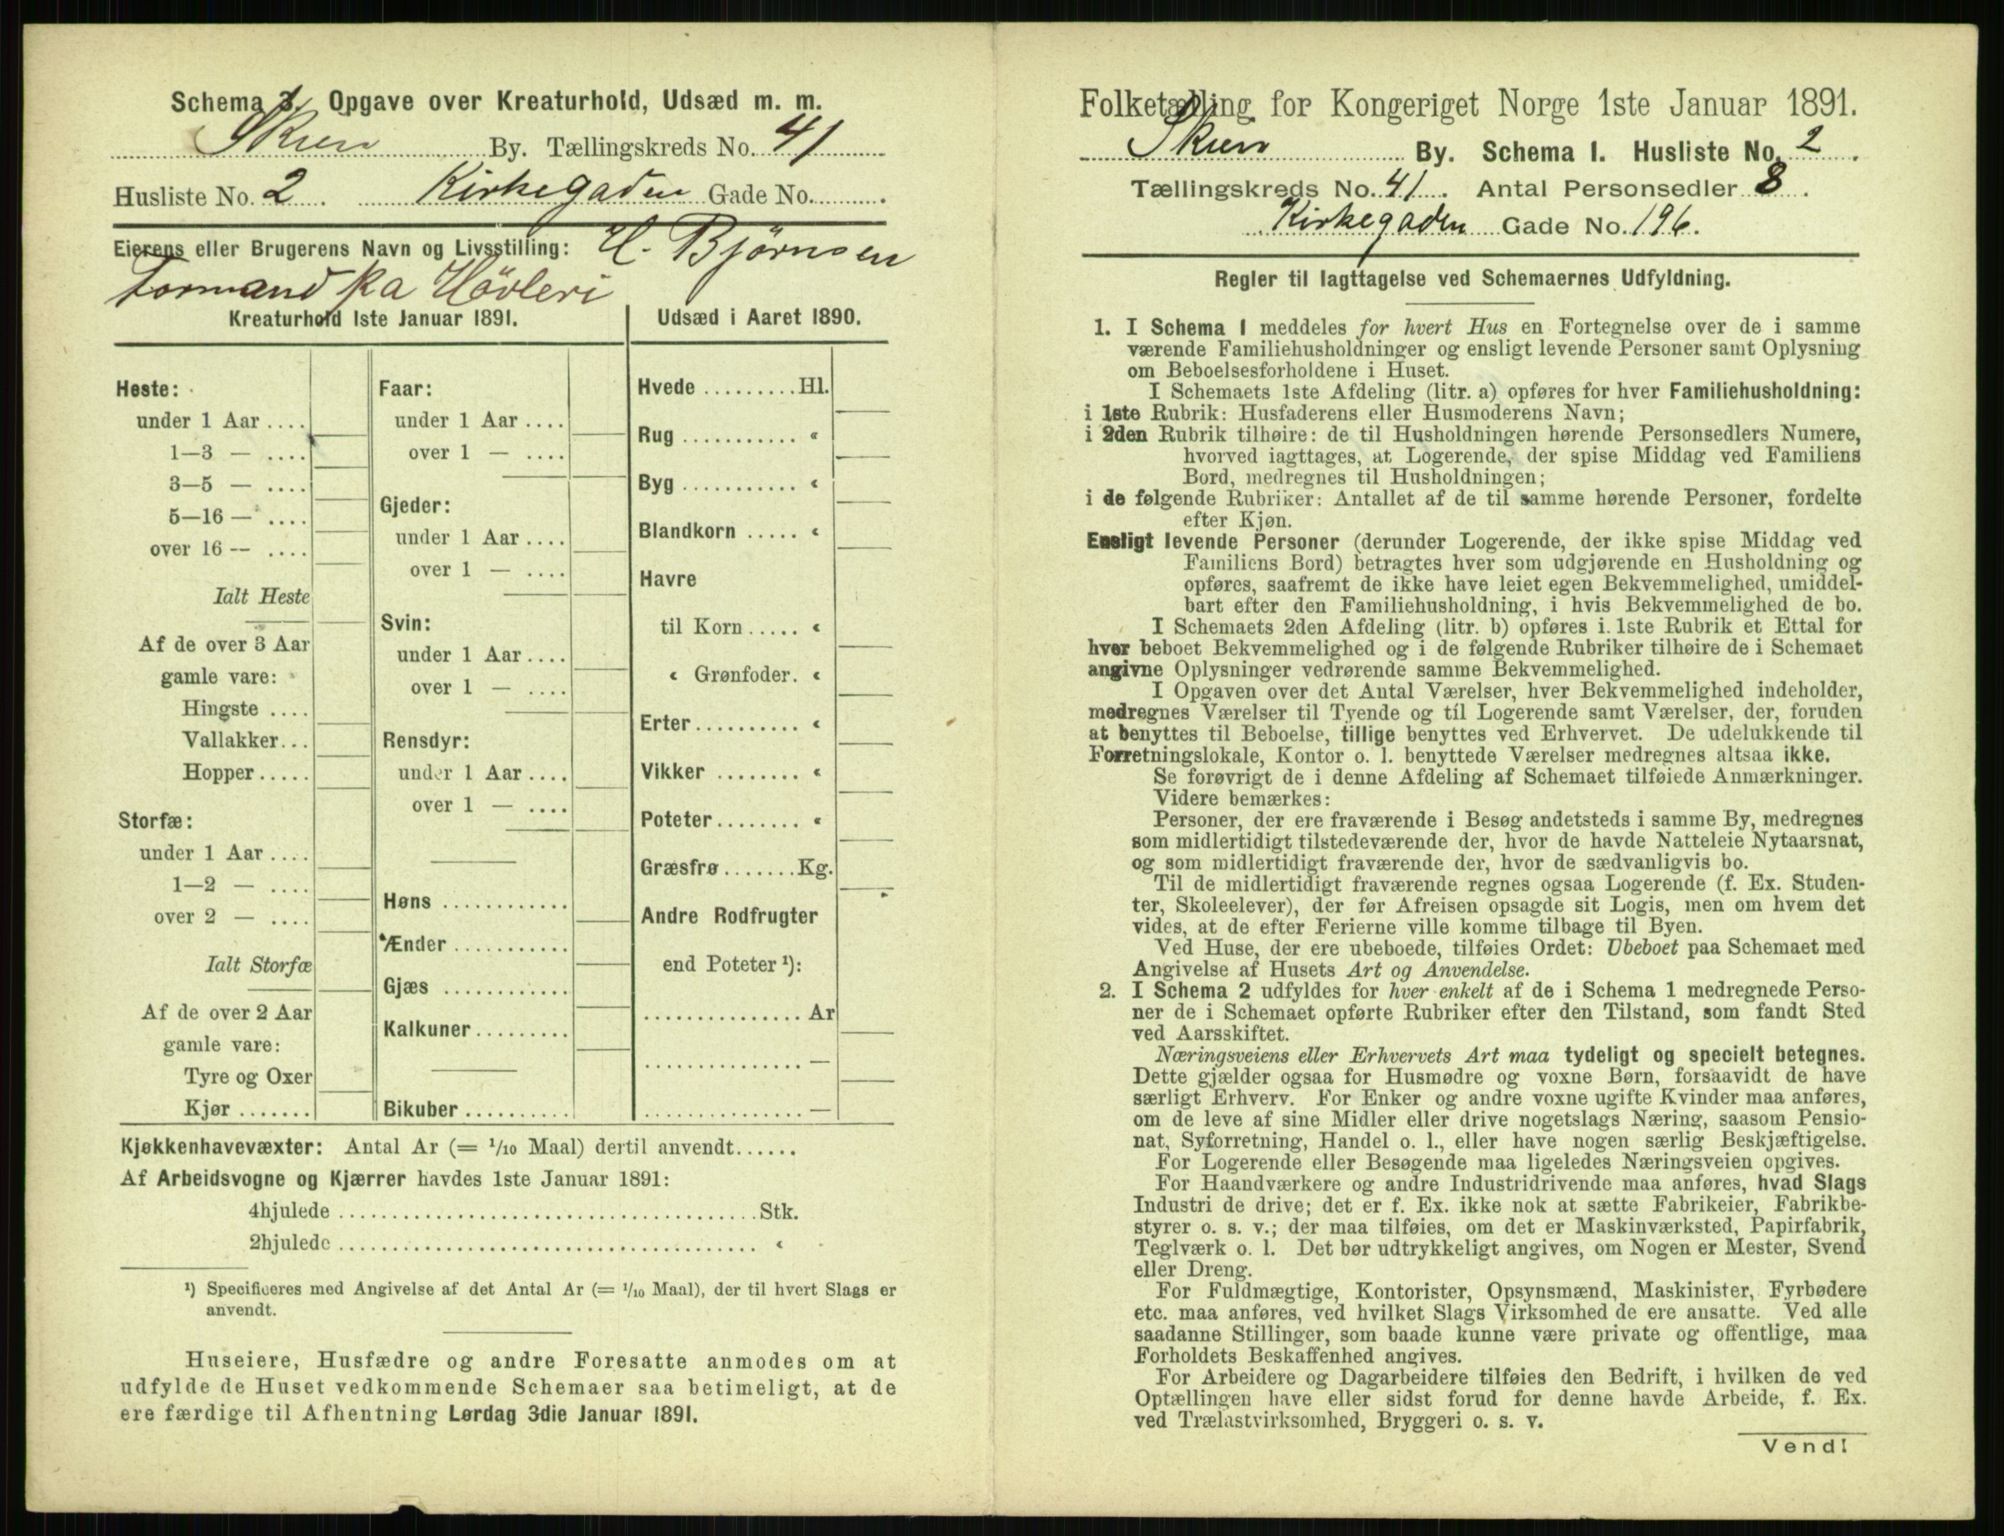 Schema 3. Opgave over Kreaturhold, Udsæd m. m.
Skien By. Tællingskreds No. 41
Husliste No. 2 . Kirkegaden Gade No. .
Eierens eller Brugerens Navn og Livsstilling: H. Bjørnsen
Formand på Høvleri
Kreaturhold 1ste Januar 1891.
Heste:
under 1 Aar ....
1—3 — ....
3—5 — ....
5—16 — ....
over 16 — ....
Ialt Heste
Af de over 3 Aar
gamle vare:
Hingste ....
Vallakker...
Hopper.....
Storfæ:
under 1 Aar ....
1—2 — ....
over 2 — ....
Ialt Storfæ
Af de over 2 Aar
gamle vare:
Tyre og Oxer
Kjør .......
Faar:
under 1 Aar ....
over 1 — ....
Gjeder:
under 1 Aar ....
over 1 — ....
Svin:
under 1 Aar ....
over 1 — ....
Rensdyr:
under 1 Aar ....
over 1 — ....
Høns ............
Ænder ...........
Gjæs ............
Kalkuner .........
Bikuber ..........
Udsæd i Aaret 1890.
Hvede ......... Hl.
Rug ........... «
Byg ........... «
Blandkorn ..... «
Havre
til Korn ..... «
« Grønfoder. «
Erter .......... «
Vikker ........ «
Poteter ........ «
Græsfrø ....... Kg.
Andre Rodfrugter
end Poteter ¹):
............... Ar
............... —
............... —
Kjøkkenhavevæxter: Antal Ar (= 1/10 Maal) dertil anvendt......
Af Arbeidsvogne og Kjærrer havdes 1ste Januar 1891:
4hjulede ........................................ Stk.
2hjulede ........................................ «
¹) Specificeres med Angivelse af det Antal Ar (= 1/10 Maal), der til hvert Slags er
anvendt.
Huseiere, Husfædre og andre Foresatte anmodes om at
udfylde de Huset vedkommende Schemaer saa betimeligt, at de
ere færdige til Afhentning Lørdag 3die Januar 1891.
Folketælling for Kongeriget Norge 1ste Januar 1891.
Skien By. Schema 1. Husliste No. 2 .
Tællingskreds No. 41 . Antal Personsedler 8 .
Kirkegaden Gade No. 196.
Regler til Iagttagelse ved Schemaernes Udfyldning.
1. I Schema 1 meddeles for hvert Hus en Fortegnelse over de i samme
værende Familiehusholdninger og ensligt levende Personer samt Oplysning
om Beboelsesforholdene i Huset.
I Schemaets 1ste Afdeling (litr. a) opføres for hver Familiehusholdning:
i 1ste Rubrik: Husfaderens eller Husmoderens Navn;
i 2den Rubrik tilhøire: de til Husholdningen hørende Personsedlers Numere,
hvorved iagttages, at Logerende, der spise Middag ved Familiens
Bord, medregnes til Husholdningen;
i de følgende Rubriker: Antallet af de til samme hørende Personer, fordelte
efter Kjøn.
Ensligt levende Personer (derunder Logerende, der ikke spise Middag ved
Familiens Bord) betragtes hver som udgjørende en Husholdning og
opføres, saafremt de ikke have leiet egen Bekvemmelighed, umiddel-
bart efter den Familiehusholdning, i hvis Bekvemmelighed de bo.
I Schemaets 2den Afdeling (litr. b) opføres i 1ste Rubrik et Ettal for
hver beboet Bekvemmelighed og i de følgende Rubriker tilhøire de i Schemaet
angivne Oplysninger vedrørende samme Bekvemmelighed.
I Opgaven over det Antal Værelser, hver Bekvemmelighed indeholder,
medregnes Værelser til Tyende og til Logerende samt Værelser, der, foruden
at benyttes til Beboelse, tillige benyttes ved Erhvervet. De udelukkende til
Forretningslokale, Kontor o. l. benyttede Værelser medregnes altsaa ikke.
Se forøvrigt de i denne Afdeling af Schemaet tilføiede Anmærkninger.
Videre bemærkes:
Personer, der ere fraværende i Besøg andetsteds i samme By, medregnes
som midlertidigt tilstedeværende der, hvor de havde Natteleie Nytaarsnat,
og som midlertidigt fraværende der, hvor de sædvanligvis bo.
Til de midlertidigt fraværende regnes ogsaa Logerende (f. Ex. Studen-
ter, Skoleelever), der før Afreisen opsagde sit Logis, men om hvem det
vides, at de efter Ferierne ville komme tilbage til Byen.
Ved Huse, der ere ubeboede, tilføies Ordet: Ubeboet paa Schemaet med
Angivelse af Husets Art og Anvendelse.
2. I Schema 2 udfyldes for hver enkelt af de i Schema 1 medregnede Perso-
ner de i Schemaet opførte Rubriker efter den Tilstand, som fandt Sted
ved Aarsskiftet.
Næringsveiens eller Erhvervets Art maa tydeligt og specielt betegnes.
Dette gjælder ogsaa for Husmødre og voxne Børn, forsaavidt de have
særligt Erhverv. For Enker og andre voxne ugifte Kvinder maa anføres,
om de leve af sine Midler eller drive nogetslags Næring, saasom Pensio-
nat, Syforretning, Handel o. l., eller have nogen særlig Beskjæftigelse.
For Logerende eller Besøgende maa ligeledes Næringsveien opgives.
For Haandværkere og andre Industridrivende maa anføres, hvad Slags
Industri de drive; det er f. Ex. ikke nok at sætte Fabrikeier, Fabrikbe-
styrer o. s. v.; der maa tilføies, om det er Maskinværksted, Papirfabrik,
Teglværk o. l. Det bør udtrykkeligt angives, om Nogen er Mester, Svend
eller Dreng.
For Fuldmægtige, Kontorister, Opsynsmænd, Maskinister, Fyrbødere
etc. maa anføres, ved hvilket Slags Virksomhed de ere ansatte. Ved alle
saadanne Stillinger, som baade kunne være private og offentlige, maa
Forholdets Beskaffenhed angives.
For Arbeidere og Dagarbeidere tilføies den Bedrift, i hvilken de ved
Optællingen have eller sidst forud for denne havde Arbeide, f. Ex.
ved Trælastvirksomhed, Bryggeri o. s. v.
Vend!